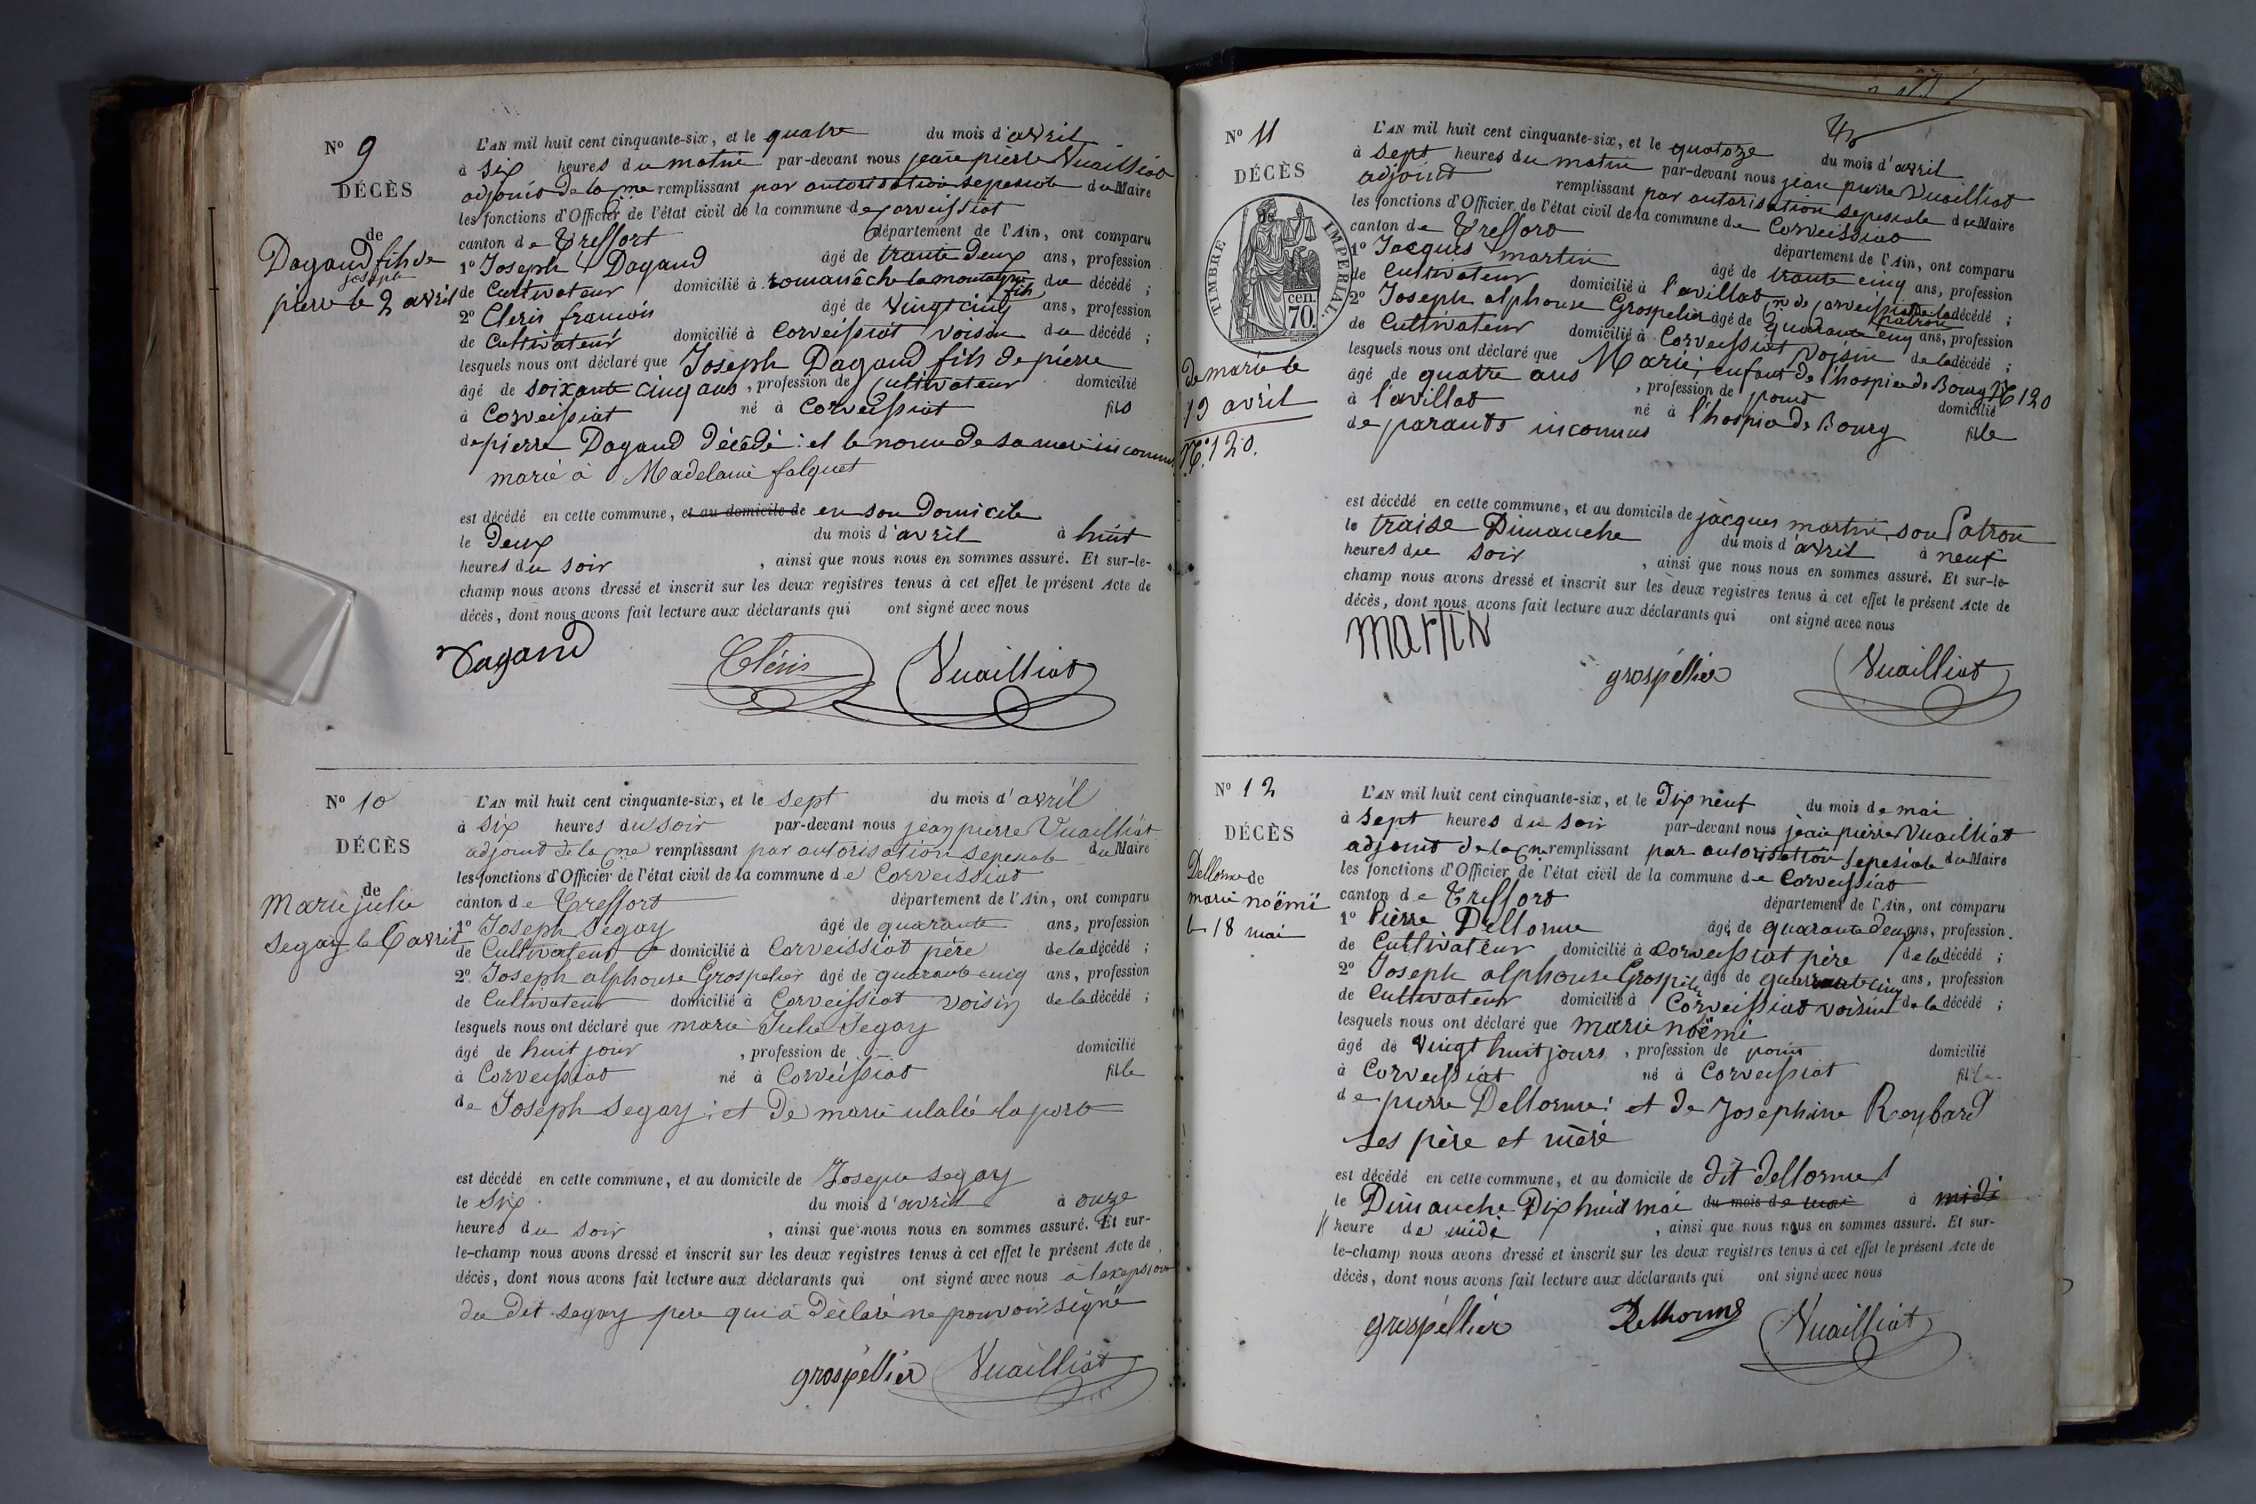 Nº 9
DÉCÈS
de
Dagand fils de
joseph
pierre le 2 avril
L'AN mil huit cent cinquante-six, et le quatre du mois d'avril
à six heures du matin par-devant nous jean pierre Vuailliat
adjoint de la Cne remplissant par autorisation sepesiale du Maire
les fonctions d'Officier de l'état civil de la commune de Corveissiat
canton de Treffort département de l'Ain, ont comparu
1º Joseph Dagand âgé de trante deux ans, profession
de Cultivateur domicilié à romanêche la montagne fils du décédé ;
2º Cleris francois âgé de vingt cinq ans, profession
de Cultivateur domicilié à Corveissiat voisin du décédé ;
lesquels nous ont déclaré que Joseph Dagand fils de pierre
âgé de soixante cinq ans, profession de Cultivateur domicilié
à Corveissiat né à Corveissiat fils
de pierre Dagand décédé : et le nom de sa mere inconnu
marié à Madelaine falquet
est décédé en cette commune, et au domicile de en son Domicile
le Deux du mois d'avril à huit
heures du soir , ainsi que nous nous en sommes assuré. Et sur-le-
champ nous avons dressé et inscrit sur les deux registres tenus à cet effet le présent Acte de
décès, dont nous avons fait lecture aux déclarants qui ont signé avec nous
Dagand Cléris Vuailliat
Nº 10
DÉCÈS
de
Marie julie
segay le 6 avril
L'AN mil huit cent cinquante-six, et le sept du mois d'avril
à six heures du soir par-devant nous jean pierre Vuailliat
adjoint de la Cne remplissant par autorisation sepesiale du Maire
les fonctions d'Officier de l'état civil de la commune de Corveissiat
canton de Treffort département de l'Ain, ont comparu
1º Joseph Segay âgé de quarante ans, profession
de Cultivateur domicilié à Corveissiat père de la décédé ;
2º Joseph alphonse Grospelier âgé de quarante cinq ans, profession
de Cultivateur domicilié à Corveissiat voisin de la décédé ;
lesquels nous ont déclaré que marie Julie Segay
âgé de huit jour , profession de domicilié
à Corveissiat né à Corveissiat fille
de Joseph Segay : et de marie ulalie
est décédé en cette commune, et au domicile de Joseph segay
le six du mois d'avril à onze
heures du soir , ainsi que nous nous en sommes assuré. Et sur-
le-champ nous avons dressé et inscrit sur les deux registres tenus à cet effet le présent Acte de
décès, dont nous avons fait lecture aux déclarants qui ont signé avec nous à l'exepsion
du Dit segay pere qui à Déclaré ne pouvoir signé
grospéllier Vuailliat
Nº 11
DÉCÈS
TIMBRE IMPERIAL
cen.
70.
de marie le
13 avril
Nº 120.
L'AN mil huit cent cinquante-six, et le quatoze du mois d'avril
à sept heures du matin par-devant nous jean pierre Vuailliat
adjoint remplissant par autorisation sepesiale du Maire
les fonctions d'Officier de l'état civil de la commune de Corveissiat
canton de Treffort département de l'Ain, ont comparu
1º Jacques martin âgé de trante cinq ans, profession
de Cultivateur domicilié à l'avillat Cne de Corveissiat patron de la décédé ;
2º Joseph alphonse Grospelier âgé de quarante cinq ans, profession
de Cultivateur domicilié à Corveissiat voisin de la décédé ;
lesquels nous ont déclaré que Marie, enfant de l'hospice de Bourg Nº 120
âgé de quatre ans , profession de point domicilié
à l'avillat né à l'hospice de Bourg fille
de parants inconnus
est décédé en cette commune, et au domicile de jacques martin son Patron
le traise Dimanche du mois d'avril à neuf
heures du soir , ainsi que nous nous en sommes assuré. Et sur-le-
champ nous avons dressé et inscrit sur les deux registres tenus à cet effet le présent Acte de
décès, dont nous avons fait lecture aux déclarants qui ont signé avec nous
martin
grospéllier Vuailliat
Nº 12
DÉCÈS
Dellorme de
marie noëmi
le 18 mai
L'AN mil huit cent cinquante-six, et le Dix neuf du mois de mai
à sept heures du soir par-devant nous jean pierre Vuailliat
adjoint de la Cne remplissant par autorisation sepesiale du Maire
les fonctions d'Officier de l'état civil de la commune de Corveissiat
canton de Treffort département de l'Ain, ont comparu
1º Pierre Dellorme âgé de quarante deux ans, profession
de Cultivateur domicilié à Corveissiat père de la décédé ;
2º Joseph alphonse Grospelier âgé de quarante cinq ans, profession
de Cultivateur domicilié à Corveissiat voisin de la décédé ;
lesquels nous ont déclaré que marie noëmi
âgé de vingt huit jours , profession de point domicilié
à Corveissiat né à Corveissiat fille
de pierre Dellorme : et de Josephine Reybard
ses père et mère
est décédé en cette commune, et au domicile de dit dellorme
le Dimanche Dix huit mai du mois de mai à midi
heure de midi , ainsi que nous nous en sommes assuré. Et sur-
le-champ nous avons dressé et inscrit sur les deux registres tenus à cet effet le présent Acte de
décès, dont nous avons fait lecture aux déclarants qui ont signé avec nous
grospéllier Delhorme Vuailliat